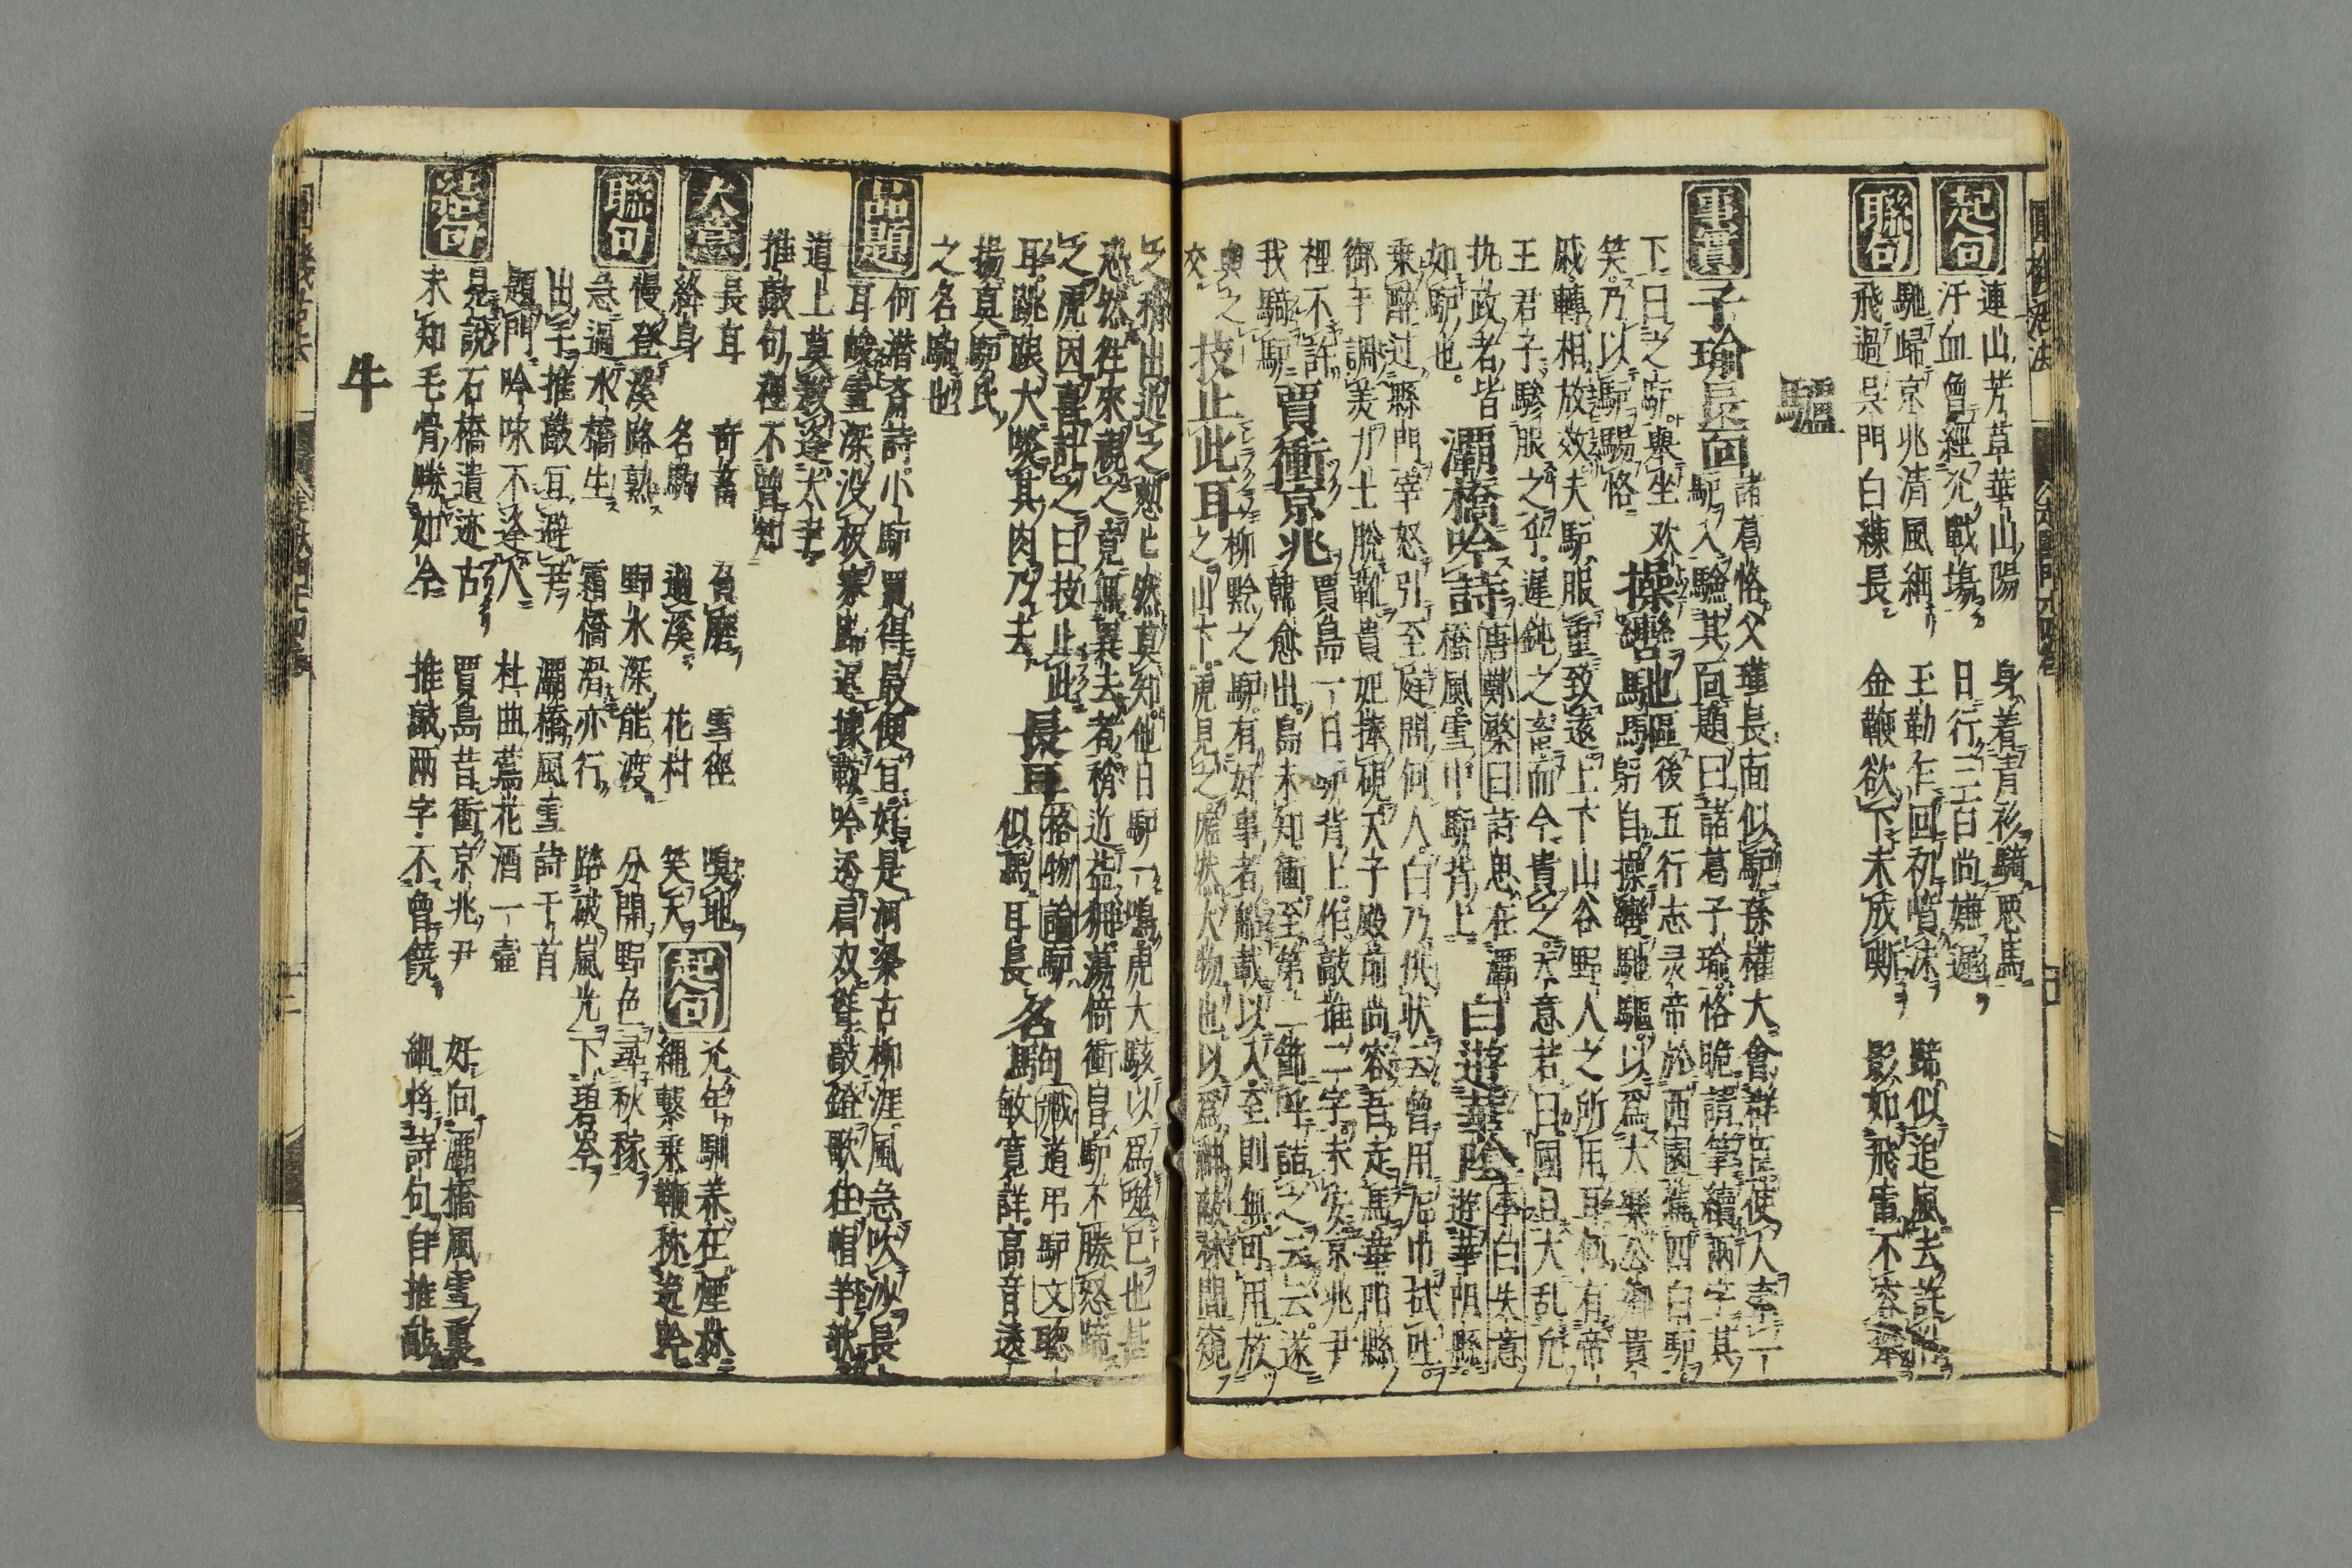 起句
連山芳草華山陽 身着青衫騎悪馬
汗血曾經沙戰塲 日行三百尚嫌遲
聯句
馳歸京兆清風細 玉勒乍回初噴沫 蹄似追風去
飛過呉門白練長 金鞭欲下未成嘶 影如飛電不
驢
事實
子瑜長面
諸葛恪父瑾長面似驢孫權大會群臣使人牽一
驢入驗其面題曰諸葛子瑜恪跪請筆續兩字其
下曰之驢舉坐歡
笑乃以驢賜恪
操轡馳驅
後五行志灵帝於西園駕四白驢
躬自操轡馳驅以爲大樂公卿貴
戚轉相放效夫驢服重致遠上下山谷野人之所用耳何有帝
王君子驂服之乎遲鈍之畜而今貴之天意若曰國且大乱
執政者皆
如驢也
灞橋吟詩
唐鄭綮曰詩思在灞
橋風雪中驢背上
白遊華陰
李白失意
遊華陰縣
乗醉过縣門宰怒引至庭問何人白乃供状云曾用龙巾拭吐
御手調羹力士脫靴貴妃捧硯天子殿前尚容吾走馬華陰縣
裡不許
我騎驢
賈衝京兆
賈島一日驢背上作敲推二字未安京兆尹
韓愈出島未知衝至第二節呼詰之云云遂
與之
交
技止此耳
柳黔之驢有好事者船載以入至則無可用放
之山下虎見之尨然大物也以爲神蔽林間窺
之稍出近之憖憖然莫知他日驢一鳴虎大駭以爲噬已也甚
恐然往來視之竟無異去者稍近益狎蕩倚衝冒驢不勝怒蹄
之虎因喜計之曰技止此
耳跳踉大㘎其肉乃去
長耳
格物論驢
似馬耳長
名駒
臧道吊驢文聡
敏寛詳高音遠
揚真驢氏
之名駒也
品題
何潜斎詩小驢買得最便宜好是河梁古柳涯風急吹沙長
耳峻雪深没板寒蹄遲據鞍吟
道上莫教逢太
推敲句裡不曾知
大意
長耳 奇畜 負磨 雪徑 嗅地
絆身 名駒 過溪 花村 笑天
起句
允年馴养在煙林
繩繫乗鞭称遠吟
聯句
慢登溪路熟 野水深能渡 分開野色尋秋稼
急過水橋生 霜橋滑亦行 踏破嵐光下碧岑
出手推敲宜避尹 灞橋風雪詩千首
題門吟咏不逢人 杜曲鶯花酒一壺
結句
見説石橋遺迹古 賈島昔衝京兆尹 好向灞橋風雪裏
未知毛骨勝如今 推敲兩字不曾饒 細将詩句自推敲
牛